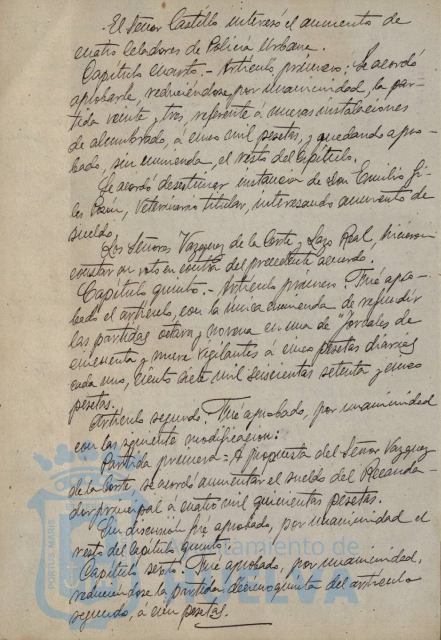 El Señor Castillo interesó el aumento de
cuatro Celadores de Policía Urbana.
Capítulo cuarto.- Artículo primero: Se acordó
aprobarle, reduciéndose, por unanimidad, la par-
tida veinte y tres, referente á nuevas instalaciones
de alumbrado, á cinco mil pesetas, y quedando apro-
bado, sin enmienda, el resto del Capítulo.
Se acordó desestimar instancia de Don Emilio
Veterinario titular, interesando aumento de
sueldo.
Los Señores Vazquez de la Corte y Lazo Real, hicieron
constar su voto en contra del precedente acuerdo.
Capítulo quinto.- Artículo primero. Fué apro-
bado el artículo, con la única enmienda de refundir
las partidas octava y novena en una de "Jornales de
cincuenta y nueve vigilantes á cinco pesetas diarias
cada uno, ciento siete mil seiscientas setenta y cinco
pesetas.
Artículo segundo. Fué aprobado, por unanimidad
con las siguiente modificacion:
Partida primera = A propuesta del Señor Vazquez
de la Corte, se acordó aumentar el sueldo del Recauda-
dor principal á cuatro mil quinientas pesetas.
Sin discusión fué aprobado, por unanimidad el
resto del Capítulo quinto.
Capítulo sexto. Fué aprobado, por unanimidad,
reduciéndose la partida décimoquinta del artículo
segundo, á cien pesetas.
PORTUS MARIS
Ayuntamiento de
HUELVA